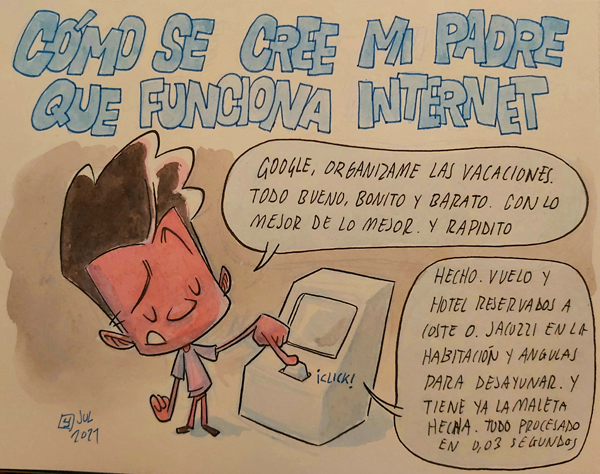 CÓMO SE CREE MI PADRE
QUE FUNCIONA INTERNET
GOOGLE, ORGANIZAME LAS VACACIONES.
TODO BUENO, BONITO Y BARATO. CON LO
MEJOR DE LO MEJOR. Y RAPIDITO
HECHO. VUELO Y
HOTEL RESERVADOS A
COSTE 0. JACUZZI EN LA
HABITACIÓN Y ANGULAS
PARA DESAYUNAR. Y
TIENE YA LA MALETA
HECHA. TODO PROCESADO
EN 0,03 SEGUNDOS
¡CLICK!
JUL
2021